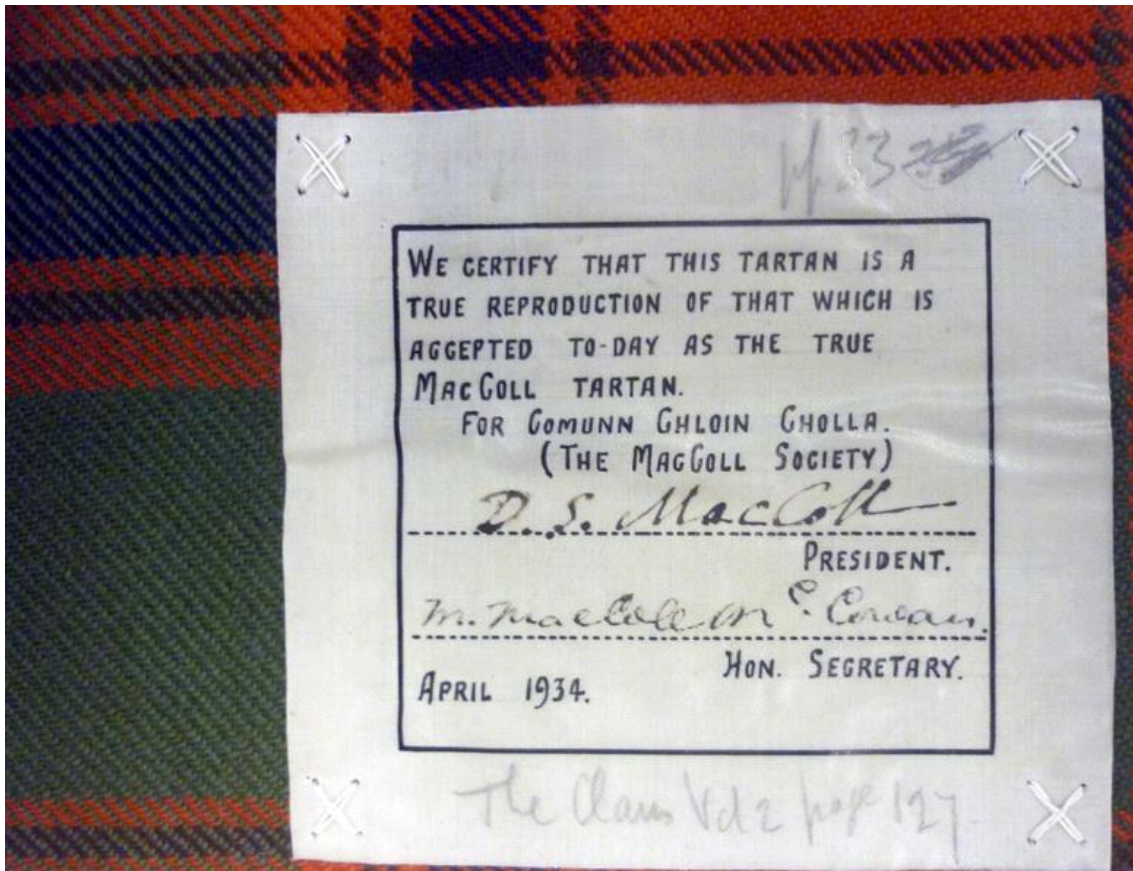 WE CERTIFY THAT THIS TARTAN IS A
TRUE REPRODUCTION OF THAT WHICH IS
ACCEPTED TO-DAY AS THE TRUE
MACCOLL TARTAN.
FOR COMUNN CHLOIN CHOLLA.
(THE MACCOLL SOCIETY)
D. S. MacColl
PRESIDENT.
M. MacColl McCowan.
HON. SECRETARY.
APRIL 1934.
The Clans Vol 2 page 127